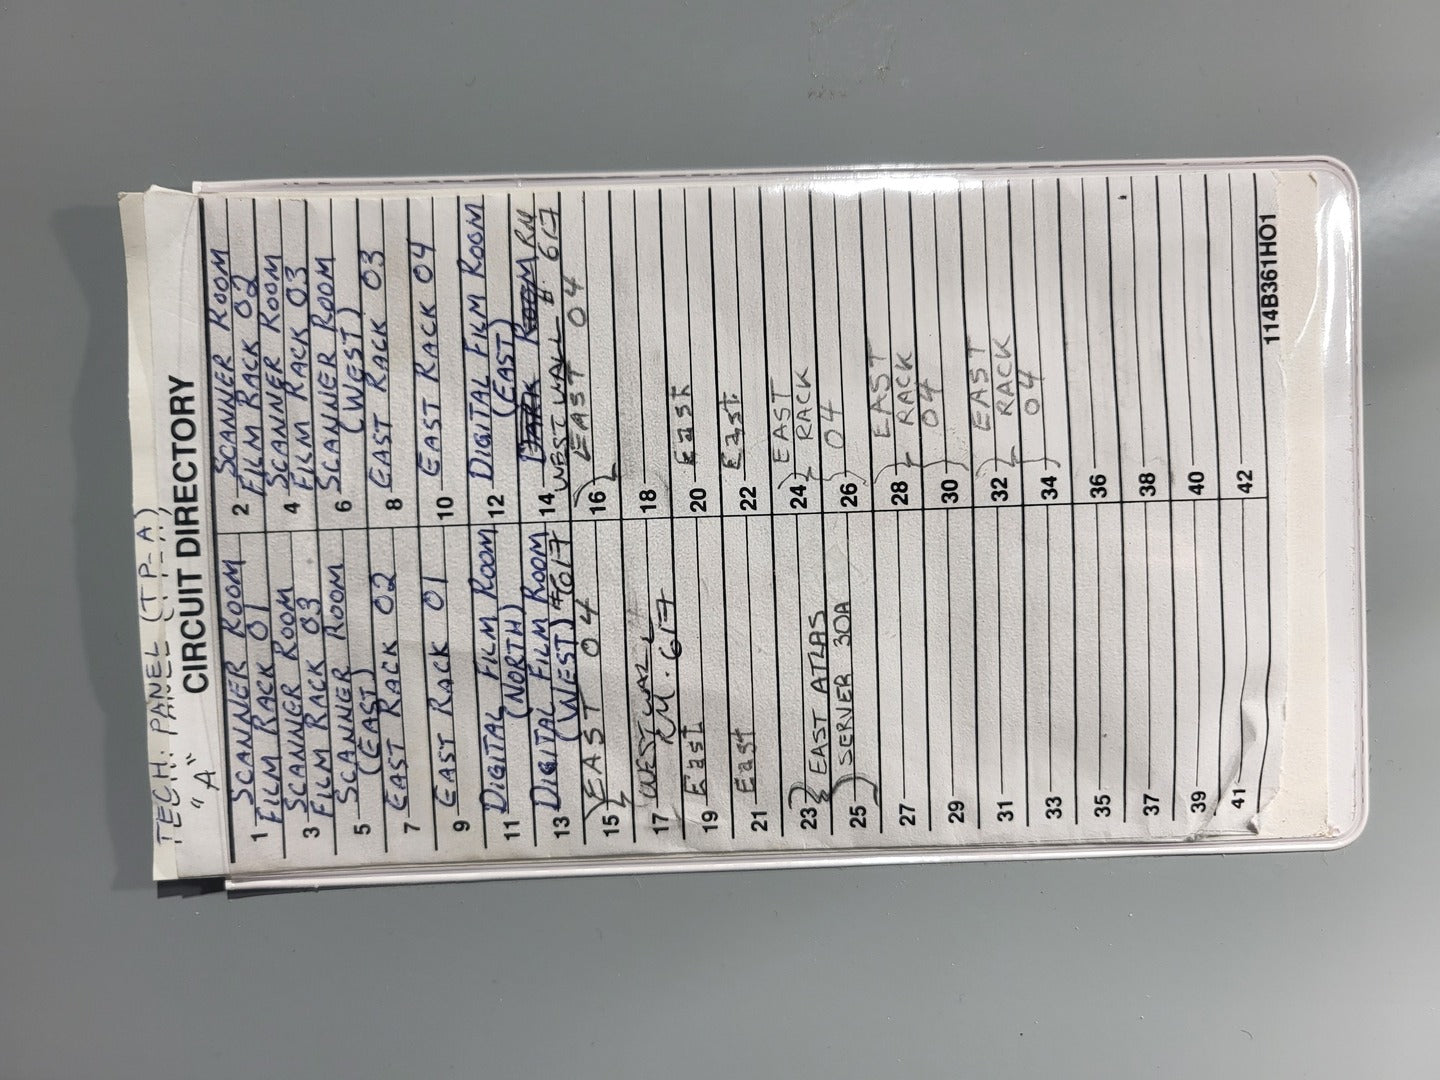 TECH. PANEL (TP-A)
"A" PANEL (TP-A)
CIRCUIT DIRECTORY
1 SCANNER ROOM
FILM RACK 01
3 SCANNER ROOM
FILM RACK 03
5 SCANNER ROOM
(EAST)
7 EAST RACK 02
9 EAST RACK 01
11 DIGITAL FILM ROOM
(NORTH)
13 DIGITAL FILM ROOM
(WEST) #617
15 EAST 04
17 WEST WALL
RM. 617
19 East
21 East
23 EAST ATLAS
25 SERVER 30A
27
29
31
33
35
37
39
41
2 SCANNER ROOM
FILM RACK 02
4 SCANNER ROOM
FILM RACK 03
6 SCANNER ROOM
(WEST)
8 EAST RACK 03
10 EAST RACK 04
12 DIGITAL FILM ROOM
(EAST)
14 DARK ROOM RM
WEST WALL # 617
16 EAST 04
18
20 East
22 East
24 EAST
RACK
26 04
28 EAST
RACK
30 04
32 EAST
RACK
34 04
36
38
40
42
114B361H01